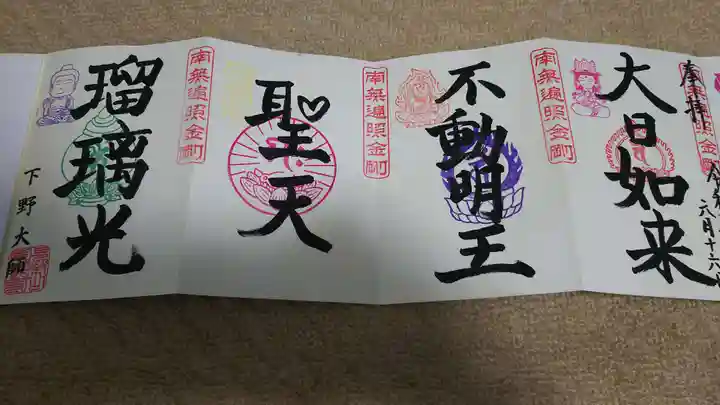 奉拝
六月十六
大日如来
南無遍照金剛
不動明王
南無遍照金剛
聖天
南無遍照金剛
瑠璃光
下野大師